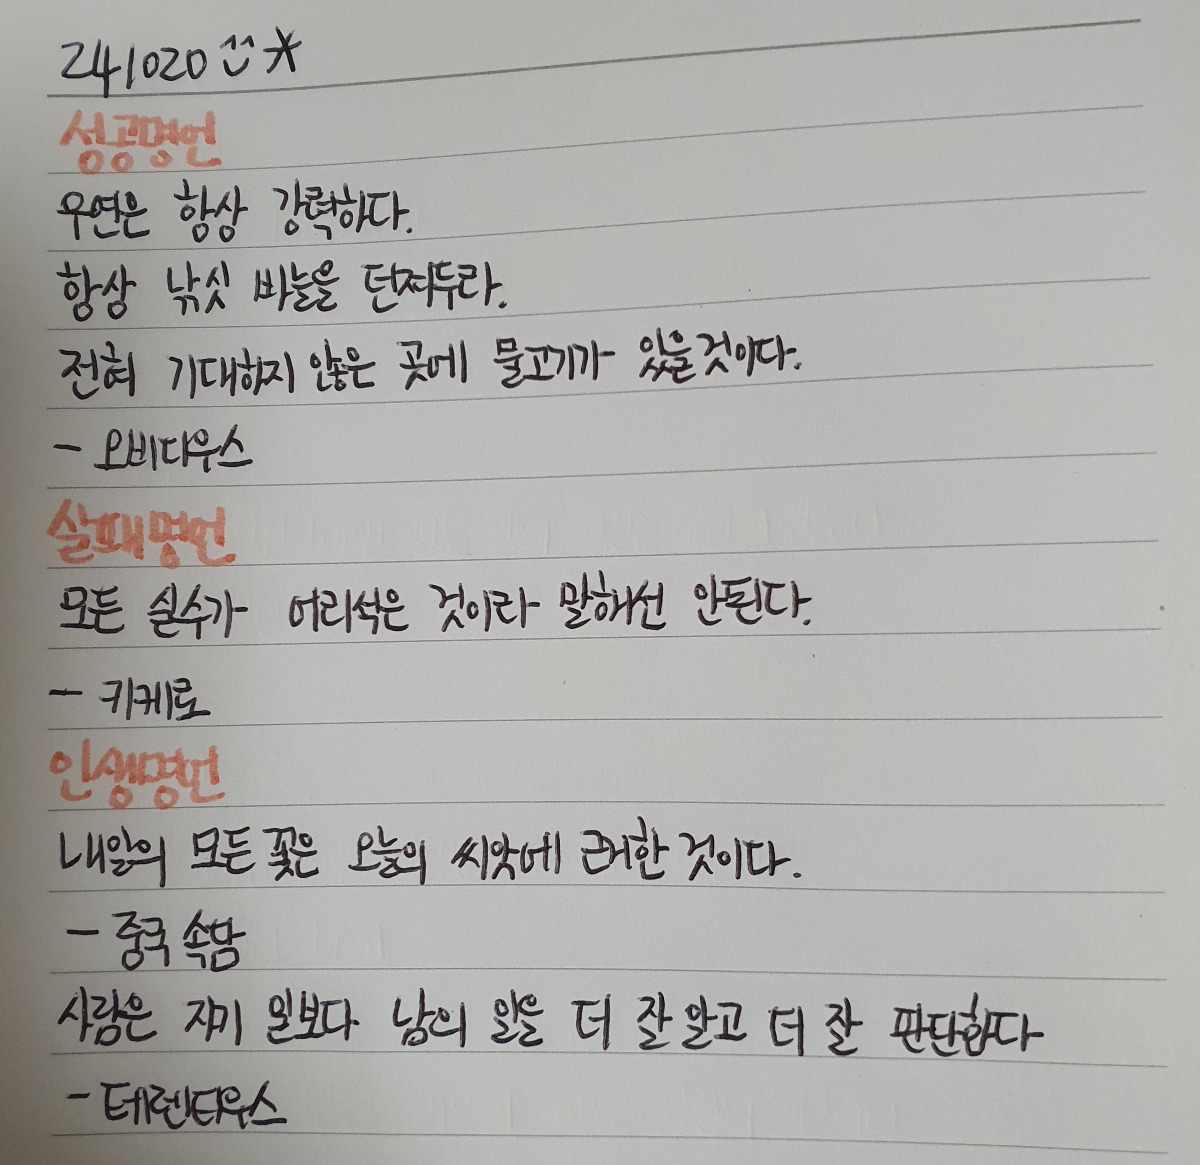 241020 ^^ *
성공명언
우연은 항상 강력하다.
항상 낚싯 바늘을 던져두라.
전혀 기대하지 않은 곳에 물고기가 있을것이다.
- 오비디우스
실패명언
모든 실수가 어리석은 것이라 말해선 안된다.
- 키케로
인생명언
내일의 모든 꽃은 오늘의 씨앗에 근거한 것이다.
- 중국 속담
사람은 자기 일보다 남의 일을 더 잘 알고 더 잘 판단한다
- 테렌티우스